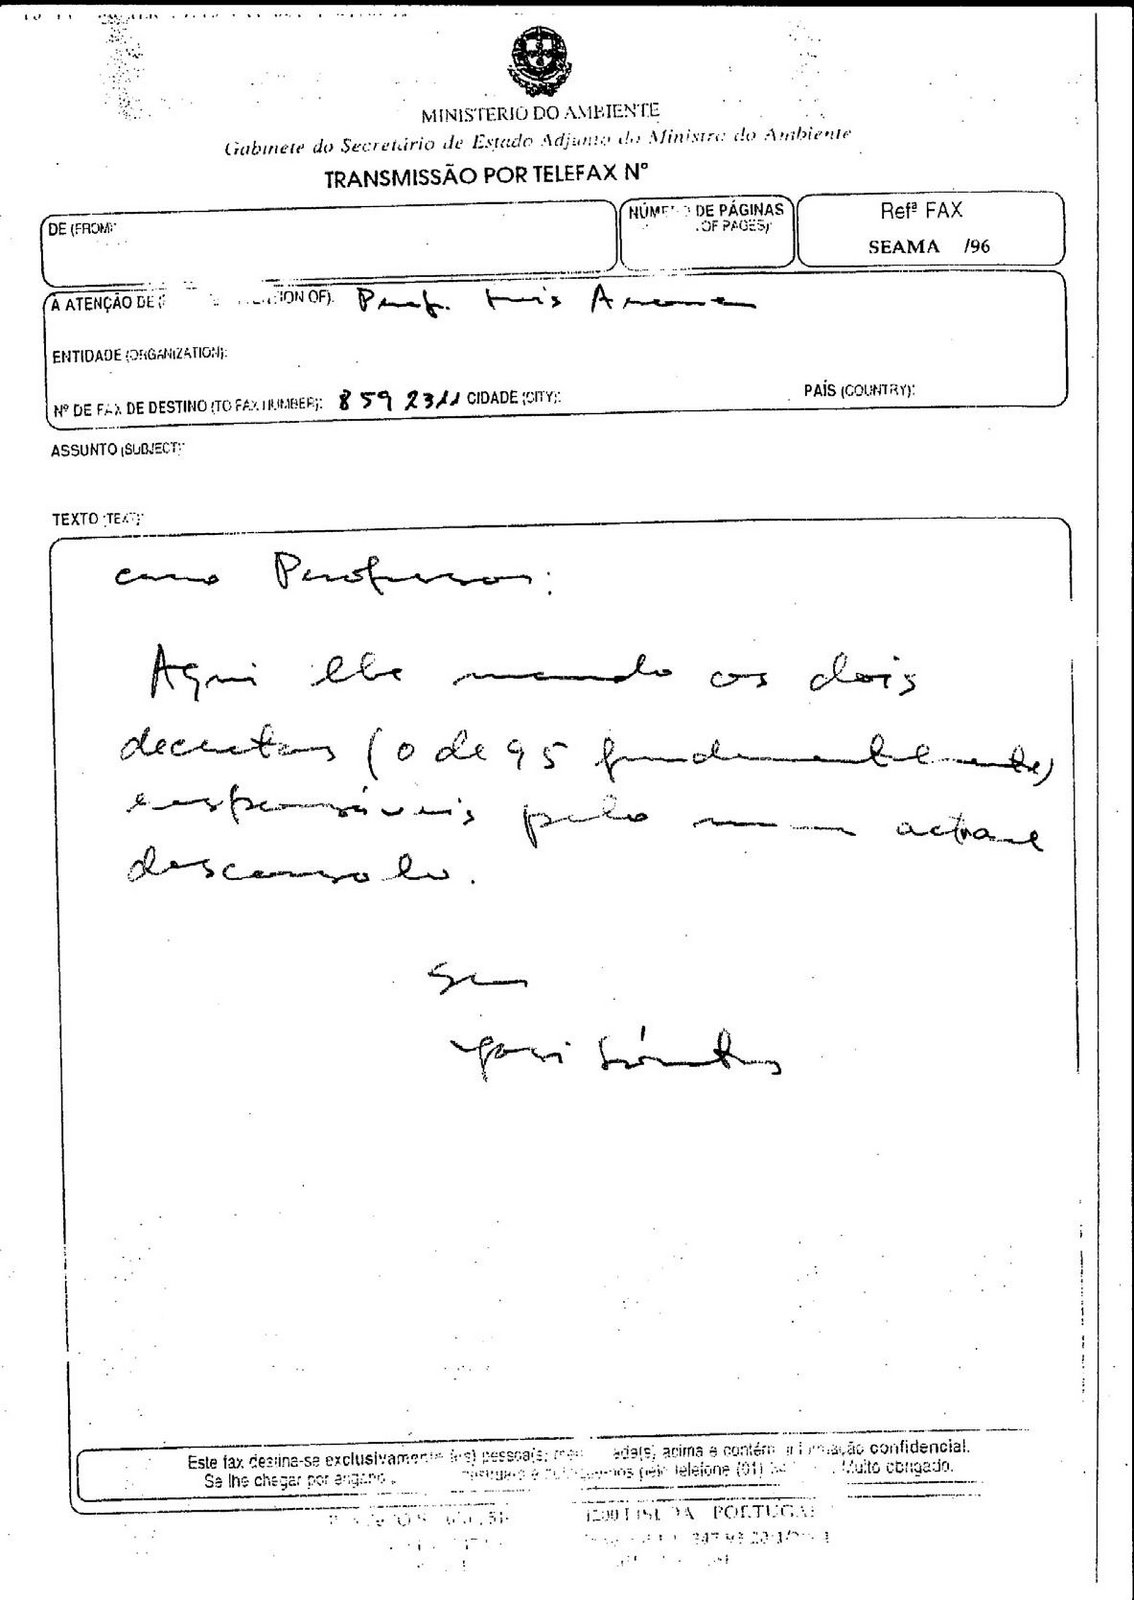 MINISTERIO DO AMBIENTE
Gabinete do Secretário de Estado Adjunto do Ministro do Ambiente
TRANSMISSÃO POR TELEFAX Nº
DE (FROM):
NÚMERO DE PÁGINAS
(OF PAGES):
Refª FAX
SEAMA /96
À ATENÇÃO DE (ATTENTION OF): Prof. Luis
ENTIDADE (ORGANIZATION):
Nº DE FAX DE DESTINO (TO FAX NUMBER): 859 2311 CIDADE (CITY):
PAÍS (COUNTRY):
ASSUNTO (SUBJECT):
TEXTO (TEXT):
Caro Professor:
Aqui lhe mando os dois
decretos (o de 95 fundamentalmente)
responsáveis pelo nosso actual
desconsolo.
Seu
Este fax destina-se exclusivamente à(s) pessoa(s) acima e contém informação confidencial.
Se lhe chegar por engano pelo telefone (01) Muito obrigado.
1200 LISBOA PORTUGAL